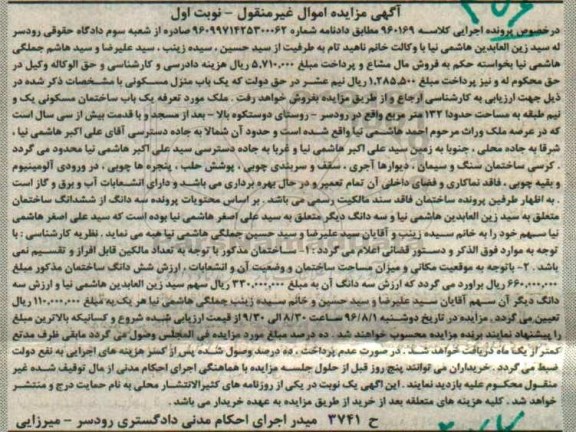 آگهی مزایده اموال غیرمنقول - نوبت اول
درخصوص پرونده اجرایی کلاسه ۹۶۰۱۶۹ مطابق دادنامه شماره ۹۶۰۹۹۷۱۴۲۵۳۰۰۰۶۲ صادره از شعبه سوم دادگاه حقوقی رودسر
له سید زین العابدین هاشمی نیا با وکالت خانم ناهید تام به طرفیت از سید حسین ، سیده زینب ، سید علیرضا و سید هاشم جملگی
هاشمی نیا بخواسته حکم به فروش مال مشاع و پرداخت مبلغ ۵,۷۱۰,۰۰۰ ریال هزینه دادرسی و کارشناسی و حق الوکاله وکیل در
حق محکوم له و نیز پرداخت مبلغ ۱,۲۸۵,۵۰۰ ریال نیم عشر در حق دولت که یک باب منزل مسکونی با مشخصات ذکر شده در
ذیل جهت ارزیابی به کارشناسی ارجاع و از طریق مزایده بفروش خواهد رفت . ملک مورد تعرفه یک باب ساختمان مسکونی یک و
نیم طبقه به مساحت حدودا ۱۳۲ متر مربع واقع در رودسر - روستای دوستکوه بالا - بعد از مسجد و با قدمت بیش از سی سال است
که در عرصه ملک وراث مرحوم احمد هاشمی نیا واقع شده است و حدود آن شمالا به جاده دسترسی آقای علی اکبر هاشمی نیا ،
شرقا به جاده محلی ، جنوبا به زمین سید علی اکبر هاشمی نیا و غربا به جاده دسترسی سید علی اکبر هاشمی نیا محدود می گردد
. کرسی ساختمان سنگ و سیمان ، دیوارها آجری ، سقف و سربندی چوبی ، پوشش حلب ، پنجره ها چوبی ، در ورودی آلومینیوم
و بقیه چوبی ، فاقد نماکاری و فضای داخلی آن تمام تعمیر و در حال بهره برداری می باشد و دارای انشعابات آب و برق و گاز است
. به اظهار طرفین پرونده ساختمان فاقد سند مالکیت رسمی می باشد . بر اساس محتویات پرونده سه دانگ از ششدانگ ساختمان
متعلق به سید زین العابدین هاشمی نیا و سه دانگ دیگر متعلق به سید علی اصغر هاشمی نیا بوده است که سید علی اصغر هاشمی
نیا سهم خود را به خانم سیده زینب و آقایان سید علیرضا و سید حسین جملگی هاشمی نیا هبه می نماید . نظریه کارشناسی : با
توجه به موارد فوق الذکر و دستور قضائی اعلام می گردد : ۱- ساختمان مذکور با توجه به تعداد مالکین قابل افراز و تقسیم نمی
باشد . ۲- باتوجه به موقعیت مکانی و میزان مساحت ساختمان و وضعیت آن و انشعابات ، ارزش شش دانگ ساختمان مذکور مبلغ
۶۶۰,۰۰۰,۰۰۰ ریال براورد می گردد که ارزش سه دانگ آن به مبلغ ۳۳۰,۰۰۰,۰۰۰ ریال سهم سید زین العابدین هاشمی نیا و ارزش سه
دانگ دیگر آن سهم آقایان سید علیرضا و سید حسین و خانم سیده زینب جملگی هاشمی نیا هر یک به مبلغ ۱۱۰,۰۰۰,۰۰۰ ریال
تعیین می گردد . مزایده در تاریخ دوشنبه ۹۶/۸/۱ ساعت ۸/۳۰ الی ۹/۳۰ از قیمت ارزیابی شده شروع و کسانیکه بالاترین مبلغ
را پیشنهاد نمایند برنده مزایده محسوب خواهند شد . ده درصد مبلغ مورد مزایده فی المجلس وصول می گردد مابقی ظرف مدتع
کمتر از یک ماه دریافت خواهد شد . در صورت عدم پرداخت ، ده درصد وصول شده پس از کسر هزینه های اجرایی به نفع دولت
ضبط می گردد . خریداران می توانند پنج روز قبل از حلول جلسه مزایده با هماهنگی اجرای احکام مدنی از مال توقیف شده غیر
منقول محکوم علیه بازدید نمایند . این آگهی یک نوبت در یکی از روزنامه های کثیرالانتشار محلی به نام حمایت درج و منتشر
خواهد شد . کلیه هزینه های متعلقه بعد از خرید از طریق مزایده به عهده خریدار می باشد .
ح ۳۷۴۱ میدر اجرای احکام مدنی دادگستری رودسر - میرزایی